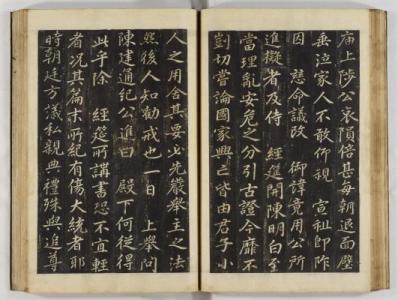 庙上陟公哀隕倍甚每朝退面壁
垂泣家人不敢仰視 宣祖即阼
因 慈命議改 御諱竟用公所
進擬者及侍 經筵開陳明白至
當理亂安危之分引古證今靡不
剴切嘗論國家興亡皆由君子小
人之用舍其要必先嚴舉主之法
然後人知勸戒也一日 上舉問
陳建通紀公進曰 殿下何從得
此乎除 經筵所講書恐不宜輕
者況其篇末所紀有傷大統者耶
時朝廷方議私親典禮殊與追尊